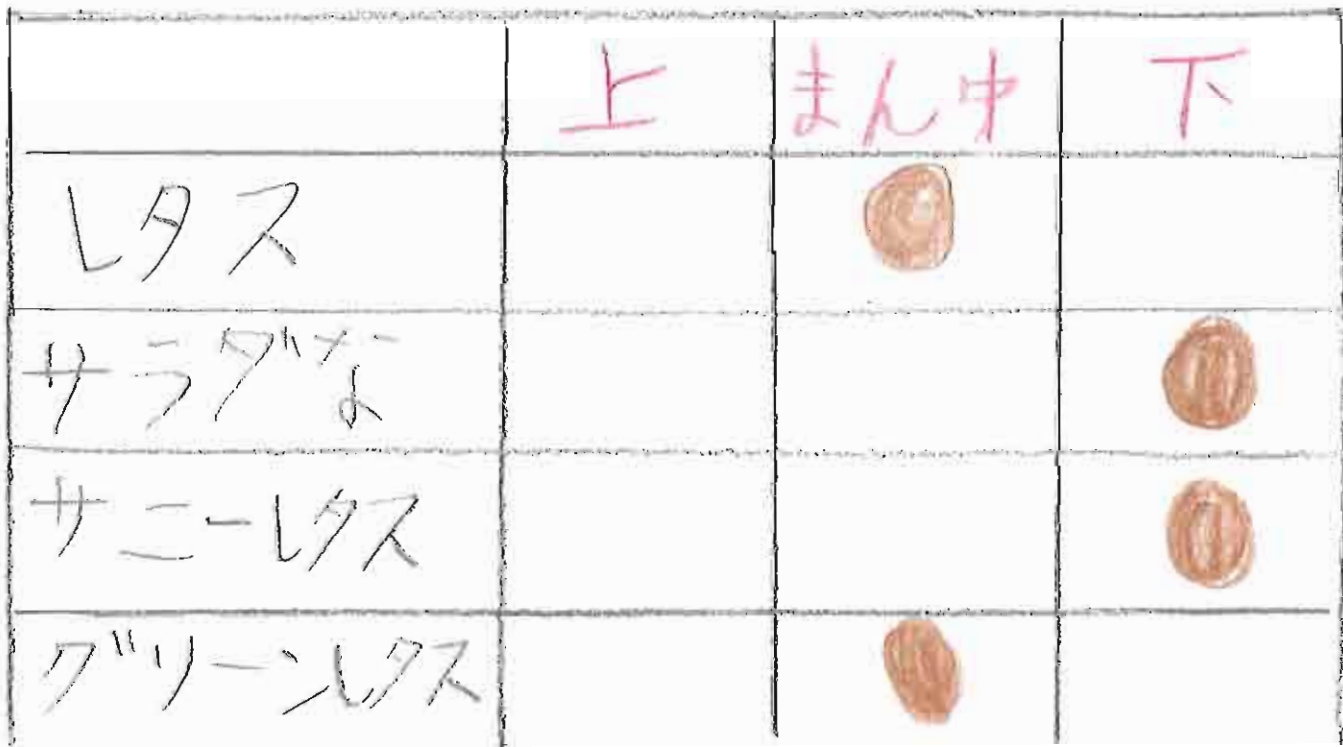 上 まん中 下
レタス
サラダな
サニーレタス
グリーンレタス